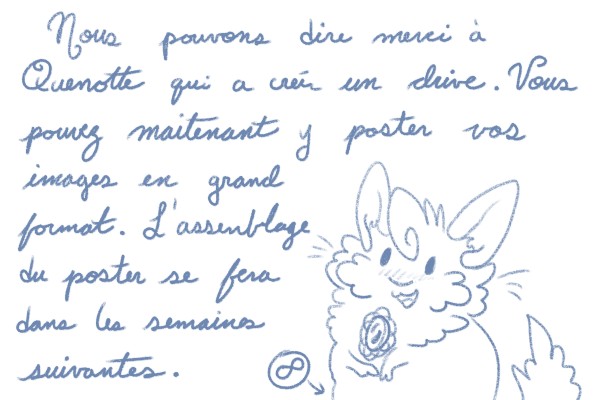 Nous pouvons dire merci à
Quenotte qui a crér un drive. Vous
pouvez maitenant y poster vos
images en grand
format. L'assenblage
du poster se fera
dans les semaines
suivantes.